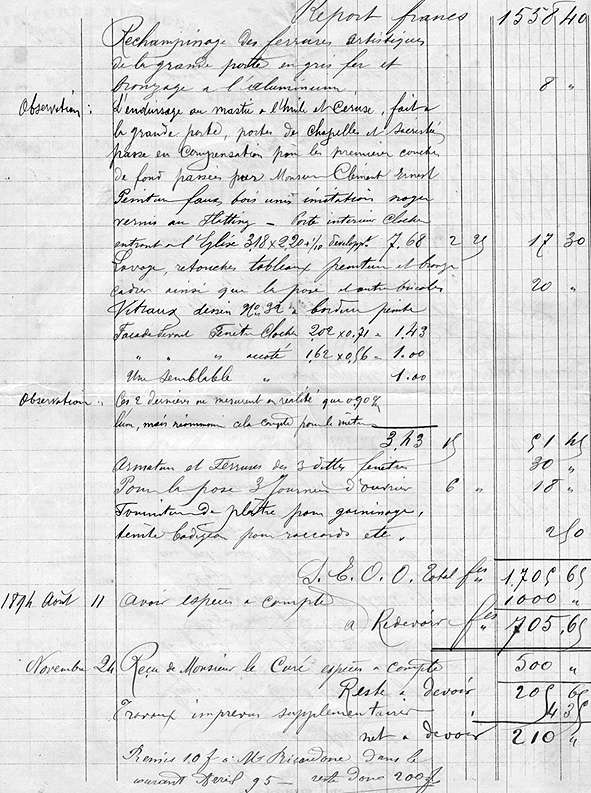 Report francs 1558 40
Rechampinage des ferrures artistiques
de la grande porte en gris fer et
bronzage a l'aluminium 8 "
Observation : L'enduissage au mastic a l'huile et Ceruse, fait a
la grande porte, portes des chapelles et Sacristie
passe en Compensation pour les premieres couches
de fond passées par Monsieur Clement Ernest
Peinture faux bois unis imitation noyer
vernis au Flatting - Porte interieur Clocher
entrant a l'Eglise 3,18 x 2,20 developpt. 7.68 2 25 17 30
Lavage, retouches tableaux peinture et bronze
cadres ainsi que la pose et autre bricoles 20 "
Vitraux dessin No. 32 a bordure peinte
Facade devant Fenêtre Clocher 2,02 x 0,71 = 1.43
" " " accoté 1,62 x 0,56 = 1.00
Une Semblable " 1.00
Observation : Ces 2 dernières ne mesurent en réalité que 0,90
l'une, mais compté pour le mètre
3,43 15 51 45
Armature et Ferrures des 3 dittes fenêtres 30 "
Pour la pose 3 Journées d'ouvrier 6 " 18 "
Fourniture de plâtre pour garnissage,
teinte badigeon pour raccords etc. 2 50
S. E. O. O. Total fcs 1705 65
1894 Août 11 Avoir espèces a compte 1000 "
a Redevoir fcs 705,65
Novembre 24 Reçu de Monsieur le Curé espèces a compte 500 "
Reste a devoir 205 65
Travaux imprevus supplementaires 4 35
net a devoir 210 "
Remis 10 f a Mr Ricardone dans le
courant Avril 95 - reste donc 200 f